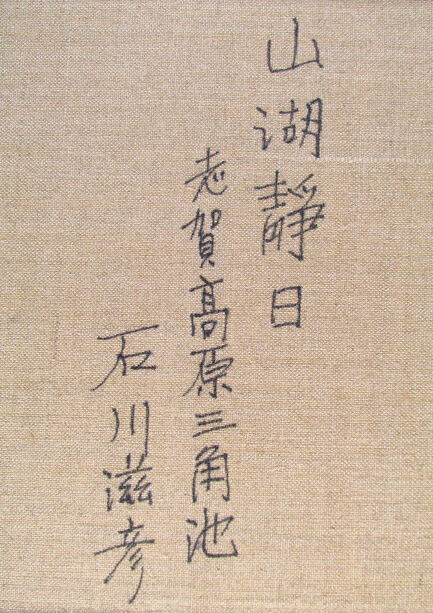 山湖靜日
志賀高原三角池
石川滋彦